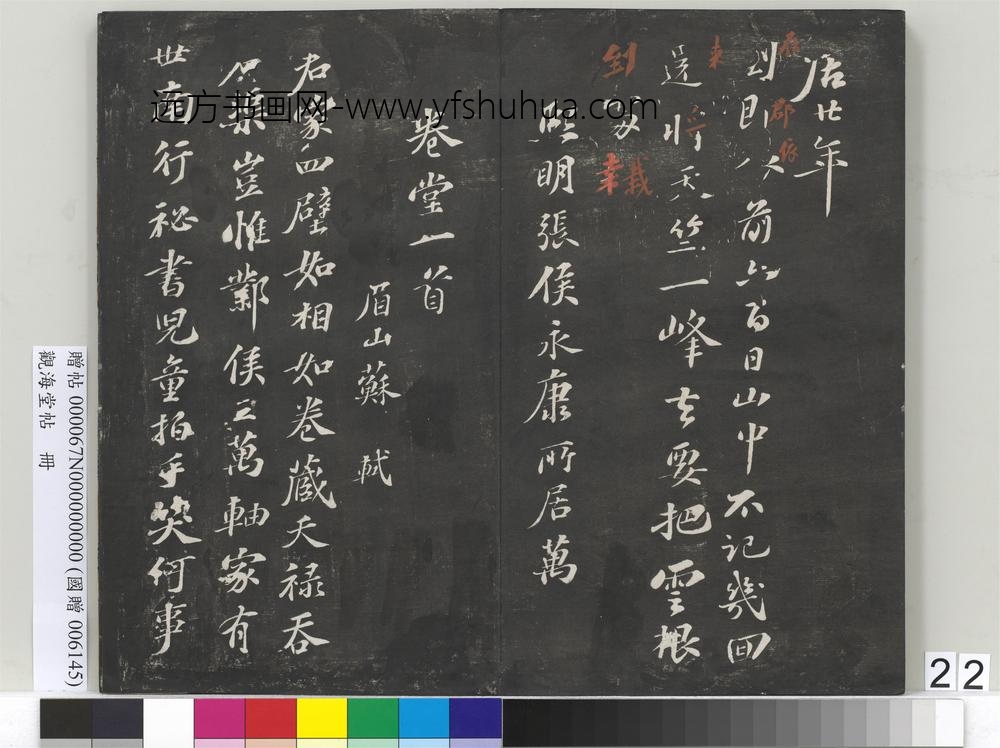 居廿年
到即以前六百日山中不記幾回
還將天竺一峰去要把雲根
到處栽
熙明張侯永康所居萬
卷堂一首
眉山蘇軾
君家四壁如相如卷藏天祿吞
石渠豈惟鄴侯三萬軸家有
世南行祕書兒童拍手笑何事
雁
郡依
來
將
到
幸栽
远方书画网-www.yfshuhua.com
觀海堂帖 冊
贈帖 000067N000000000 (國贈 006145)
22